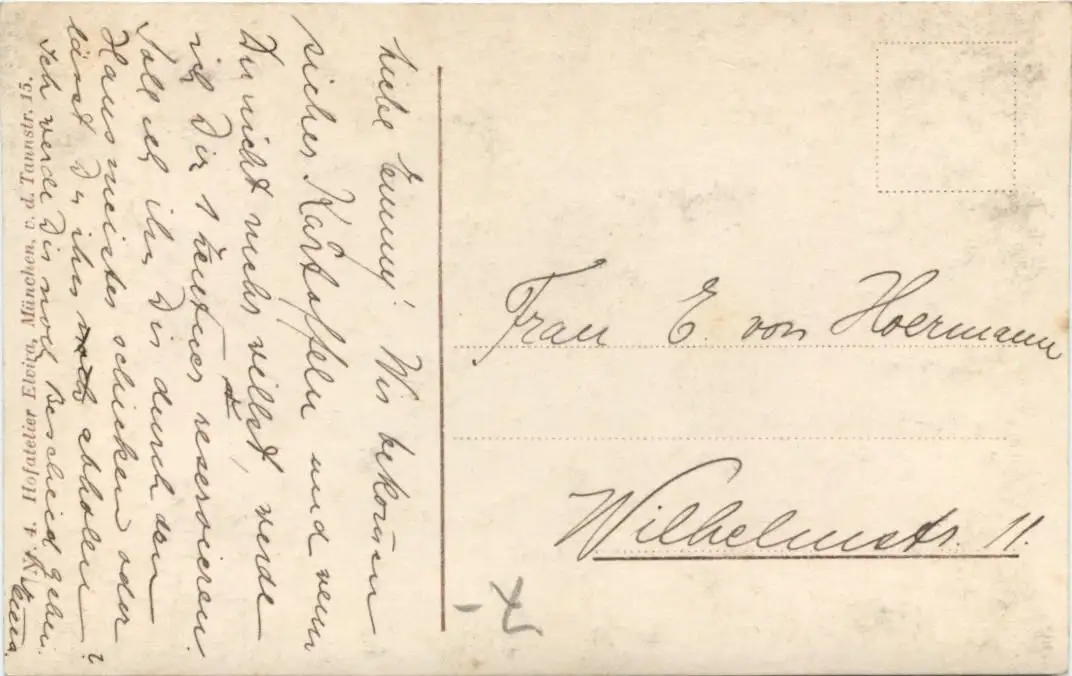 Liebe Emmy! Wir bekom̄en
sicher Kartoffeln und wenn
Du nicht mehr willst, werde
ich Dir 1 Zentner reservieren.
Soll ich ihn Dir durch den
Hausmeister schicken oder
lässt Du ihn abholen?
Ich werde Dir noch Bescheid geben.
Hofatelier Elvira, München, v. d. Tannstr. 15.
Frau E. von Hoermann
Wilhelmstr. 11.